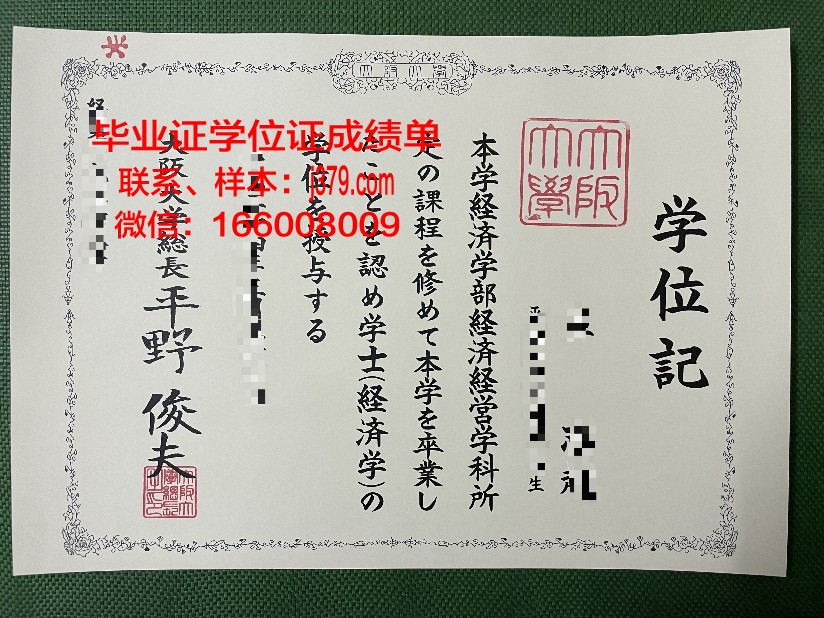 学位記
大阪
大學
生
本学経済学部経済経営学科所
定の課程を修めて本学を卒業し
たことを認め学士(経済学)の
学位を授与する
大阪大学総長 平野俊夫
毕业证学位证成绩单
联系、样本：j679.com
微信：166008009